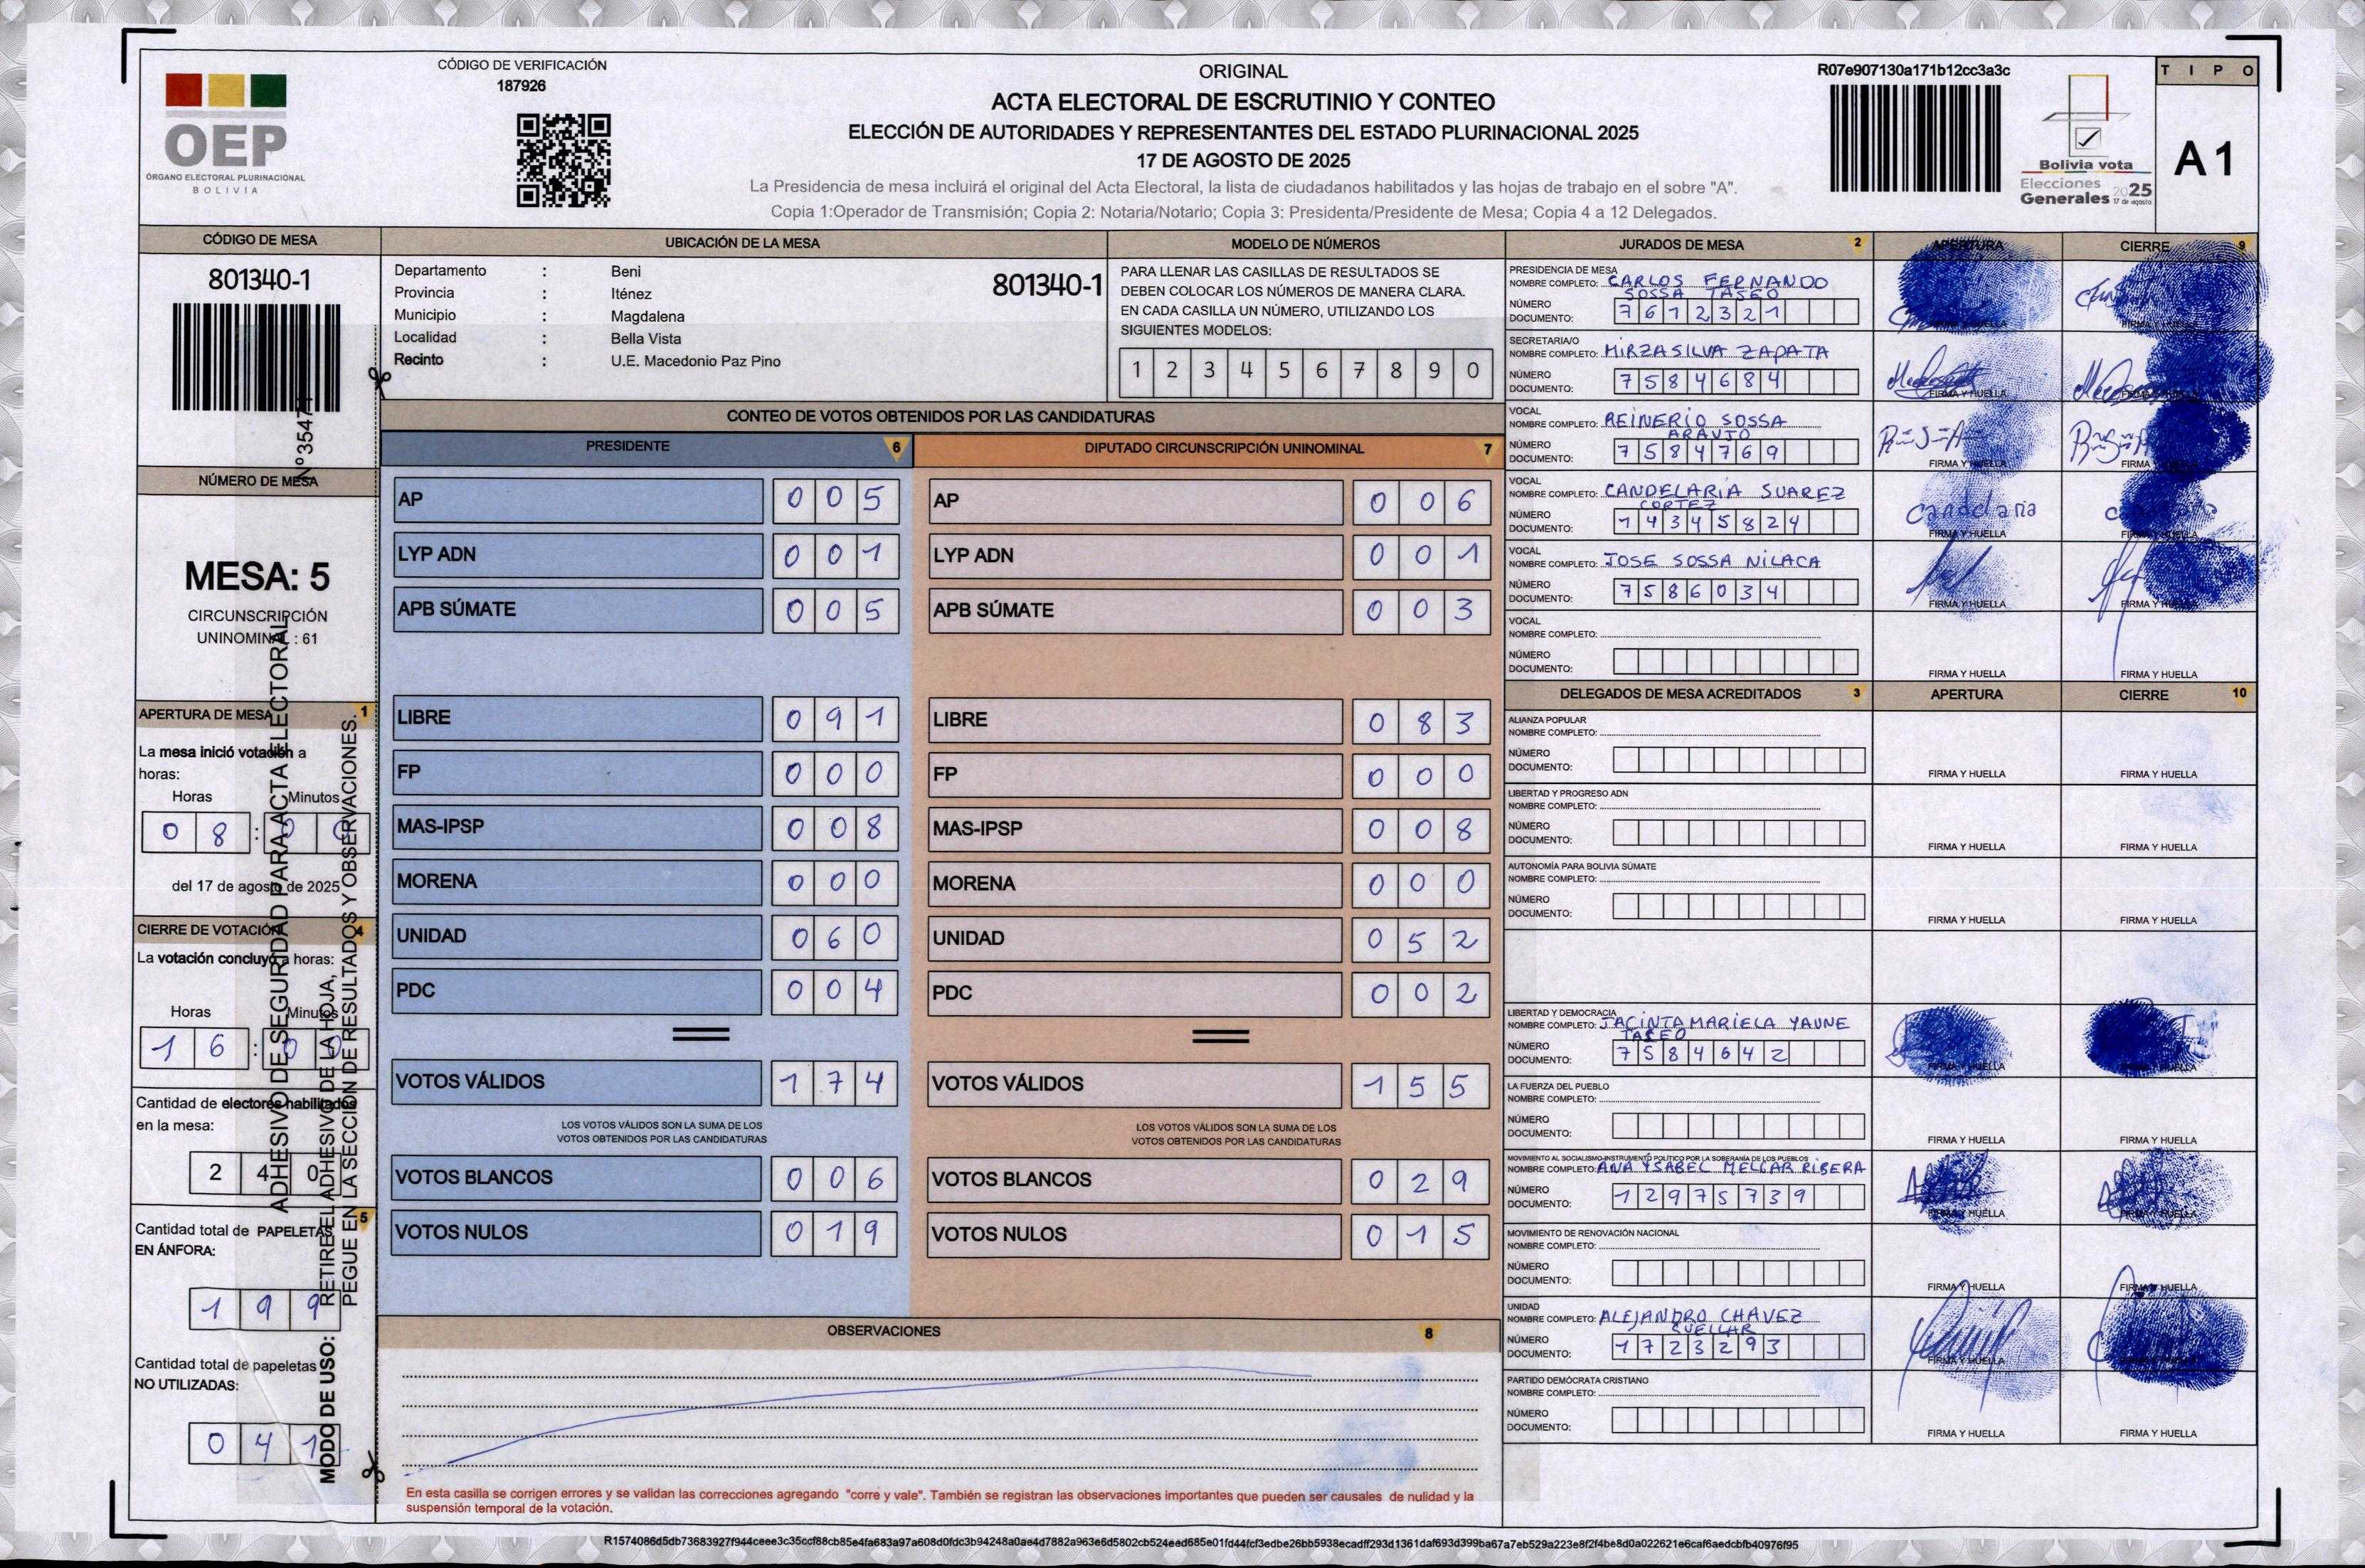 CÓDIGO DE VERIFICACIÓN
187926
OEP
ÓRGANO ELECTORAL PLURINACIONAL
BOLIVIA
ORIGINAL
ACTA ELECTORAL DE ESCRUTINIO Y CONTEO
ELECCIÓN DE AUTORIDADES Y REPRESENTANTES DEL ESTADO PLURINACIONAL 2025
17 DE AGOSTO DE 2025
La Presidencia de mesa incluirá el original del Acta Electoral, la lista de ciudadanos habilitados y las hojas de trabajo en el sobre "A".
Copia 1:Operador de Transmisión; Copia 2: Notaria/Notario; Copia 3: Presidenta/Presidente de Mesa; Copia 4 a 12 Delegados.
R07e907130a171b12cc3a3c
Bolivia vota
Elecciones
Generales 2025
17 de agosto
TIPO
A1
CÓDIGO DE MESA
801340-1
N°35471
NÚMERO DE MESA
MESA: 5
CIRCUNSCRIPCIÓN
UNINOMINAL : 61
APERTURA DE MESA 1
La mesa inició votación a
horas:
Horas Minutos
0 8 : 0 0
del 17 de agosto de 2025
CIERRE DE VOTACIÓN 4
La votación concluyó a horas:
Horas Minutos
1 6 : 0 0
Cantidad de electores habilitados
en la mesa:
2 4 0
Cantidad total de PAPELETAS 5
EN ÁNFORA:
1 9 9
Cantidad total de papeletas
NO UTILIZADAS:
0 4 1
ADHESIVO DE SEGURIDAD PARA ACTA ELECTORAL
MODO DE USO: RETIRE EL ADHESIVO DE LA HOJA,
PEGUE EN LA SECCIÓN DE RESULTADOS Y OBSERVACIONES.
UBICACIÓN DE LA MESA
Departamento : Beni
801340-1
Provincia : Iténez
Municipio : Magdalena
Localidad : Bella Vista
Recinto : U.E. Macedonio Paz Pino
MODELO DE NÚMEROS
PARA LLENAR LAS CASILLAS DE RESULTADOS SE
DEBEN COLOCAR LOS NÚMEROS DE MANERA CLARA.
EN CADA CASILLA UN NÚMERO, UTILIZANDO LOS
SIGUIENTES MODELOS:
1 2 3 4 5 6 7 8 9 0
CONTEO DE VOTOS OBTENIDOS POR LAS CANDIDATURAS
PRESIDENTE 6
DIPUTADO CIRCUNSCRIPCIÓN UNINOMINAL 7
AP 0 0 5 AP 0 0 6
LYP ADN 0 0 1 LYP ADN 0 0 1
APB SÚMATE 0 0 5 APB SÚMATE 0 0 3
LIBRE 0 9 1 LIBRE 0 8 3
FP 0 0 0 FP 0 0 0
MAS-IPSP 0 0 8 MAS-IPSP 0 0 8
MORENA 0 0 0 MORENA 0 0 0
UNIDAD 0 6 0 UNIDAD 0 5 2
PDC 0 0 4 PDC 0 0 2
VOTOS VÁLIDOS 1 7 4 VOTOS VÁLIDOS 1 5 5
LOS VOTOS VÁLIDOS SON LA SUMA DE LOS LOS VOTOS VÁLIDOS SON LA SUMA DE LOS
VOTOS OBTENIDOS POR LAS CANDIDATURAS VOTOS OBTENIDOS POR LAS CANDIDATURAS
VOTOS BLANCOS 0 0 6 VOTOS BLANCOS 0 2 9
VOTOS NULOS 0 1 9 VOTOS NULOS 0 1 5
OBSERVACIONES 8
En esta casilla se corrigen errores y se validan las correcciones agregando "corre y vale". También se registran las observaciones importantes que pueden ser causales de nulidad y la
suspensión temporal de la votación.
JURADOS DE MESA 2 APERTURA CIERRE 9
PRESIDENCIA DE MESA
NOMBRE COMPLETO: CARLOS FERNANDO
SOSSA TASEO
NÚMERO
DOCUMENTO: 7 6 1 2 3 2 1
FIRMA Y HUELLA
SECRETARIA/O
NOMBRE COMPLETO: MIRZA SILVA ZAPATA
NÚMERO
DOCUMENTO: 7 5 8 4 6 8 4
FIRMA Y HUELLA
VOCAL
NOMBRE COMPLETO: REINERIO SOSSA
ARAUJO
NÚMERO
DOCUMENTO: 7 5 8 4 7 6 9
FIRMA Y HUELLA FIRMA
VOCAL
NOMBRE COMPLETO: CANDELARIA SUAREZ
CORTEZ
NÚMERO
DOCUMENTO: 1 4 3 4 5 8 2 4
Candelaria
FIRMA Y HUELLA FIRMA Y HUELLA
VOCAL
NOMBRE COMPLETO: JOSE SOSSA NILACA
NÚMERO
DOCUMENTO: 7 5 8 6 0 3 4
FIRMA Y HUELLA FIRMA Y HUELLA
VOCAL
NOMBRE COMPLETO:
NÚMERO
DOCUMENTO:
FIRMA Y HUELLA FIRMA Y HUELLA
DELEGADOS DE MESA ACREDITADOS 3 APERTURA CIERRE 10
ALIANZA POPULAR
NOMBRE COMPLETO:
NÚMERO
DOCUMENTO:
FIRMA Y HUELLA FIRMA Y HUELLA
LIBERTAD Y PROGRESO ADN
NOMBRE COMPLETO:
NÚMERO
DOCUMENTO:
FIRMA Y HUELLA FIRMA Y HUELLA
AUTONOMÍA PARA BOLIVIA SÚMATE
NOMBRE COMPLETO:
NÚMERO
DOCUMENTO:
FIRMA Y HUELLA FIRMA Y HUELLA
LIBERTAD Y DEMOCRACIA
NOMBRE COMPLETO: JACINTA MARIELA YAUNE
TASEO
NÚMERO
DOCUMENTO: 7 5 8 4 6 4 2
FIRMA Y HUELLA FIRMA Y HUELLA
LA FUERZA DEL PUEBLO
NOMBRE COMPLETO:
NÚMERO
DOCUMENTO:
FIRMA Y HUELLA FIRMA Y HUELLA
MOVIMIENTO AL SOCIALISMO-INSTRUMENTO POLÍTICO POR LA SOBERANÍA DE LOS PUEBLOS
NOMBRE COMPLETO: ANA YSABEL MELGAR RIBERA
NÚMERO
DOCUMENTO: 1 2 9 7 5 7 3 9
FIRMA Y HUELLA FIRMA Y HUELLA
MOVIMIENTO DE RENOVACIÓN NACIONAL
NOMBRE COMPLETO:
NÚMERO
DOCUMENTO:
FIRMA Y HUELLA FIRMA Y HUELLA
UNIDAD
NOMBRE COMPLETO: ALEJANDRO CHAVEZ
CUELLAR
NÚMERO
DOCUMENTO: 1 7 2 3 2 9 3
FIRMA Y HUELLA
PARTIDO DEMÓCRATA CRISTIANO
NOMBRE COMPLETO:
NÚMERO
DOCUMENTO:
FIRMA Y HUELLA FIRMA Y HUELLA